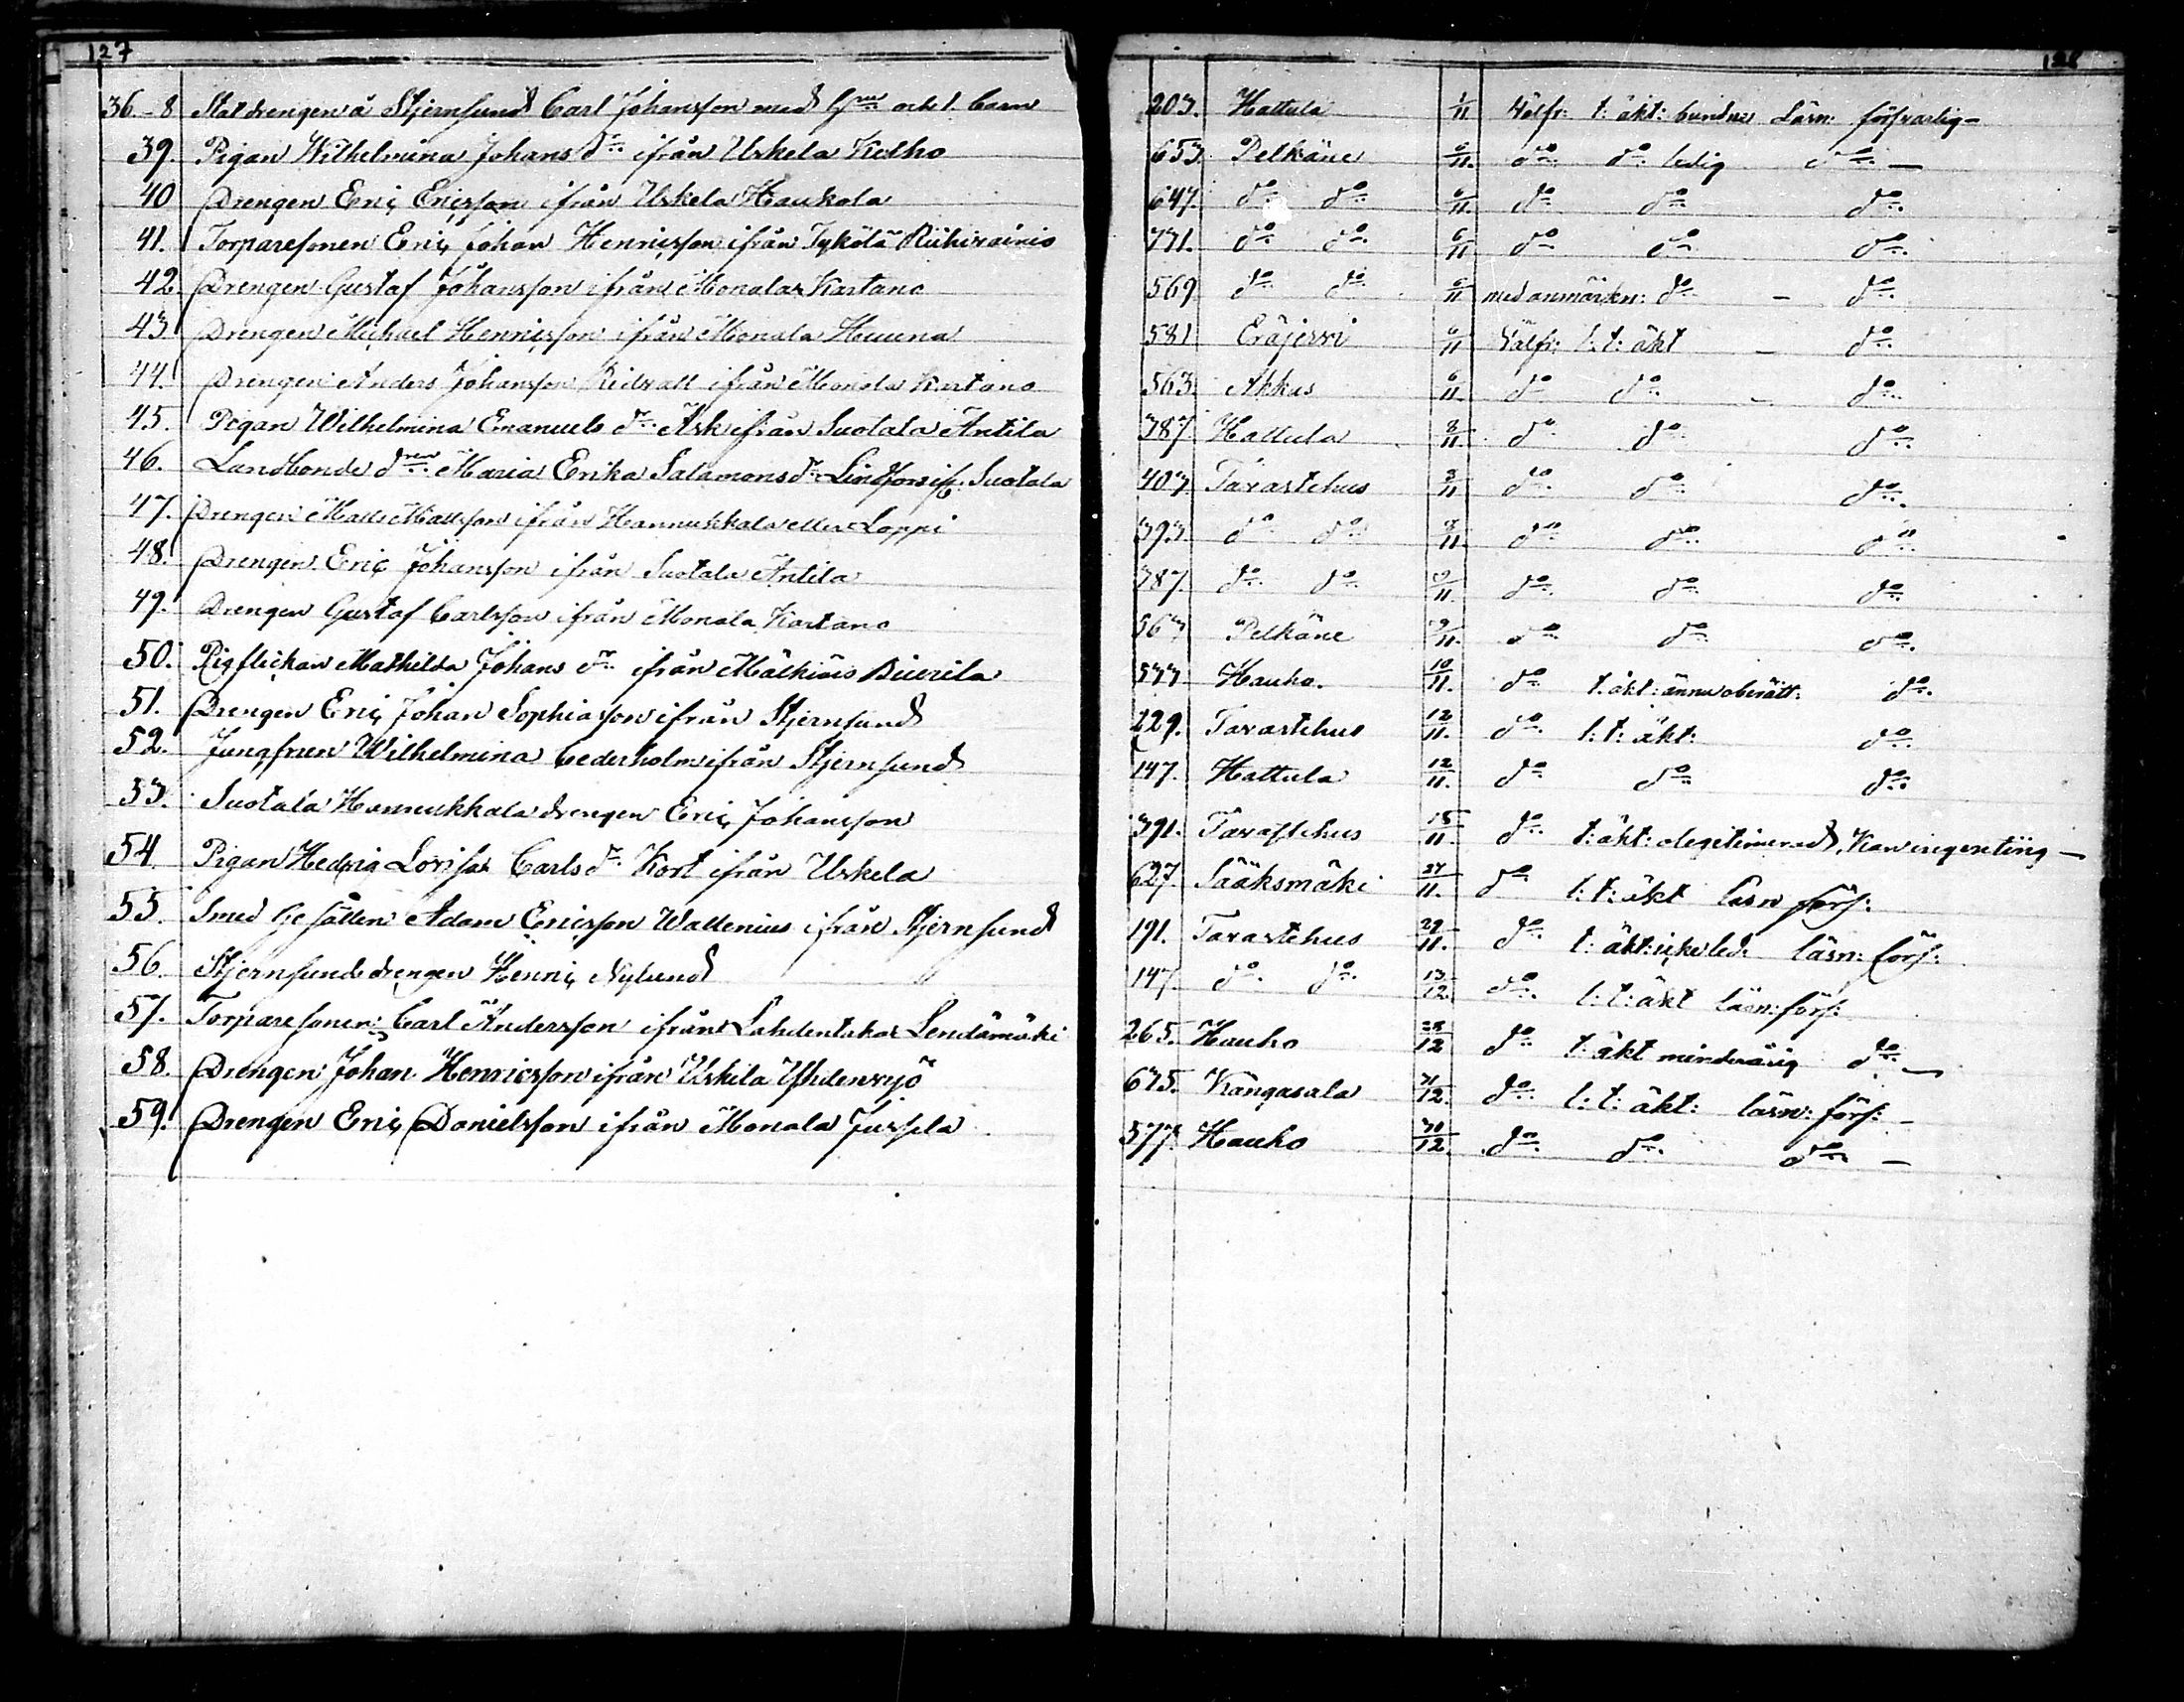 127
36-8 Statdrengen å Stjernsund Carl Johansson med h:u och 1. barn
39. Pigan Wilhelmina Johans dr ifrån Uskela Kelho
40 Drengen Eric Ericsson ifrån Uskela Haukala
41. Torparesonen Eric Johan Henricsson ifrån Tykölä Riihivainio
42. Drengen Gustaf Johansson ifrån Monala Kartano
43. Drengen Michael Henricsson ifrån Monala Huuna
44. Drengen Anders Johansson ifrån Monala Kartano
45. Pigan Wilhelmina Emanuels dr Ask ifrån Suotala Antila
46. Landbonde dren Maria Erika Salamons dr Lindfors ifr. Suotala
47. Drengen Matts Mattsson ifrån Hannukkala eller Loppi
48. Drengen Eric Johansson ifrån Suotala Antila
49. Drengen Gustaf Carlsson ifrån Monala Kartano
50. Pigflickan Mathilda Johans dr ifrån Mälkiäis
51. Drengen Eric Johan Sophiasson ifrån Stjernsund
52. Jungfrun Wilhelmina Cederholm ifrån Stjernsund
53. Suotala Hannukkala drengen Eric Johansson
54. Pigan Hedvig Lovisa Carls dr Kort ifrån Uskela
55. Smed Gesällen Adam Ericsson Wallenius ifrån Stjernsund
56. Stjernsunds drengen Henric Nylund
57. Torparesonen Carl Andersson ifrån Lahdentaka Lendämäki
58. Drengen Johan Henricsson ifrån Uskila Yhdensyjö
59. Drengen Eric Danielsson ifrån Monala Jussila
203. Hattula 1/11 Välfr: t: äkt: bunden Läsn: försvarlig –
653. Pelkäne 6/11. do do ledig do –
647. do do 6/11. do do do
771. do do 6/11 do do do
569. do do 6/11 med anmärkn: do – do
581 Eräjervi 6/11 Välfr: l: t: äkt – do
563. Akkas 6/11. do do – do
387. Hattula 8/11. do do do
403. Tavastehus 8/11 do do do
393. do do 8/11. do do do
387. do do 9/11. do do do
567 Pelkäne 9/11. do do do
577 Hauho. 10/11. do t. äkt: ännu oberätt: do
229. Tavastehus 12/11. do l: t: äkt: do
147. Hattula 12/11. do do do
391. Tavastehus 15/11. do t: äkt: olegitimerad, Kan ingenting –
627. Sääksmäki 27/11. do l: t: äkt läsn förs:
191. Tavastehus 29/11. do t: äkt: icke led: läsn: förs:
147. do do 13/12. do l: t: äkt läsn: förs:
265. Hauho 28/12 do t: äkt minderårig do –
675. Kangasala 31/12. do l: t: äkt: läsn: förs: –
577. Hauho 30/12. do do do –